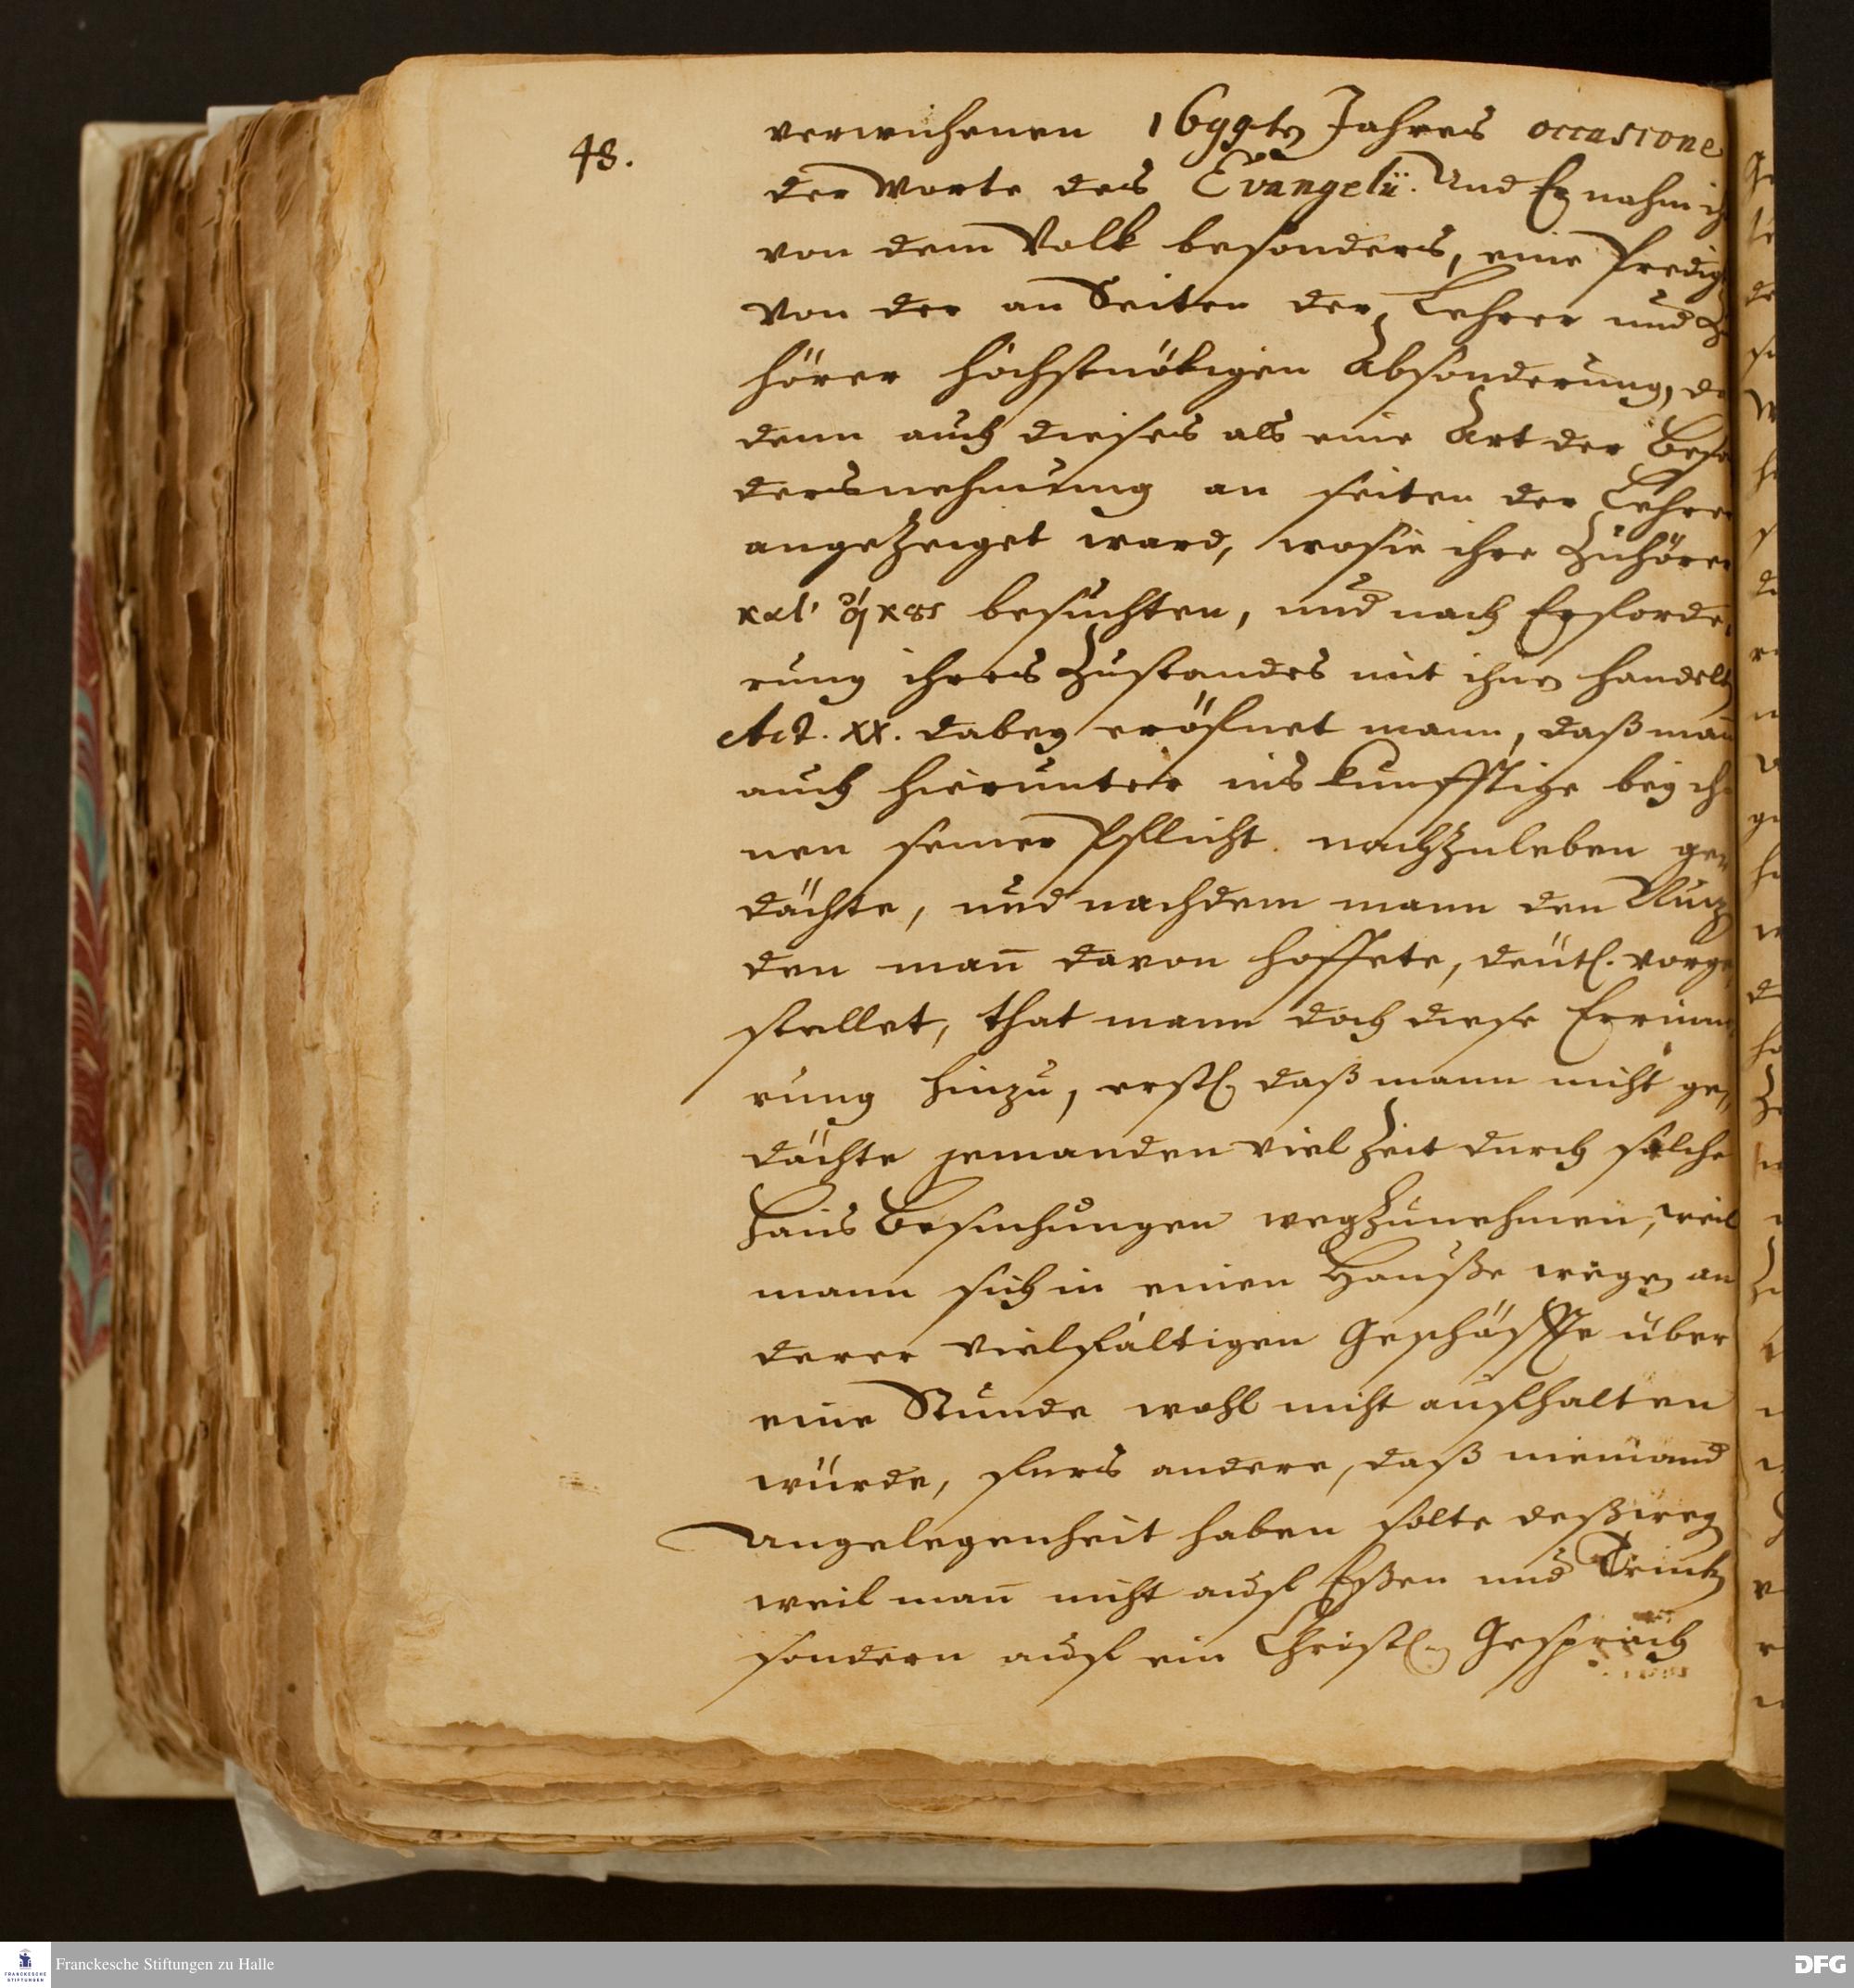 48.
verwichenen 1699ten Jahres occasione
der Worte des Evangelii. Und Er nahm ih
von dem Volk besonders, eine Predig
von der an Seiten der Lehrer und Zu
hörer höchstnötigen Absonderung, da
denn auch dieses als eine Art der Beson
dersnehmung an seiten der Lehrer
angezeiget ward, wo sie ihre Zuhörer
κατ' οἴκους besuchten, und nach Erforde,
rung ihres Zustandes mit ihnen handelten
Act. XX. dabey eröfnet mann, daß man̄
auch hierunter ins kunfftige bey ih
nen seiner Pflicht nachzuleben ge,
dächte, und nachdem mann den Nutz
den man̄ davon hoffete, deütl. vorge,
stellet, that mann doch diese Erinne,
rung hinzu, erstl. daß mann nicht ge,
dächte jemanden viel Zeit durch solche
Haus Besuchungen wegzunehmen, weil
mann sich in einen Hauße wegen an
derer vielfältigen Geschäffte über
eine Stunde wohl nicht aufhalten
würde, fürs andere, daß niemand
Ungelegenheit haben solte deßwegen
weil man̄ nicht auf Eßen und Trinken
sondern auf ein Christl. Gespräch
Franckesche Stiftungen zu Halle
FRANCKESCHE
STIFTUNGEN
DFG